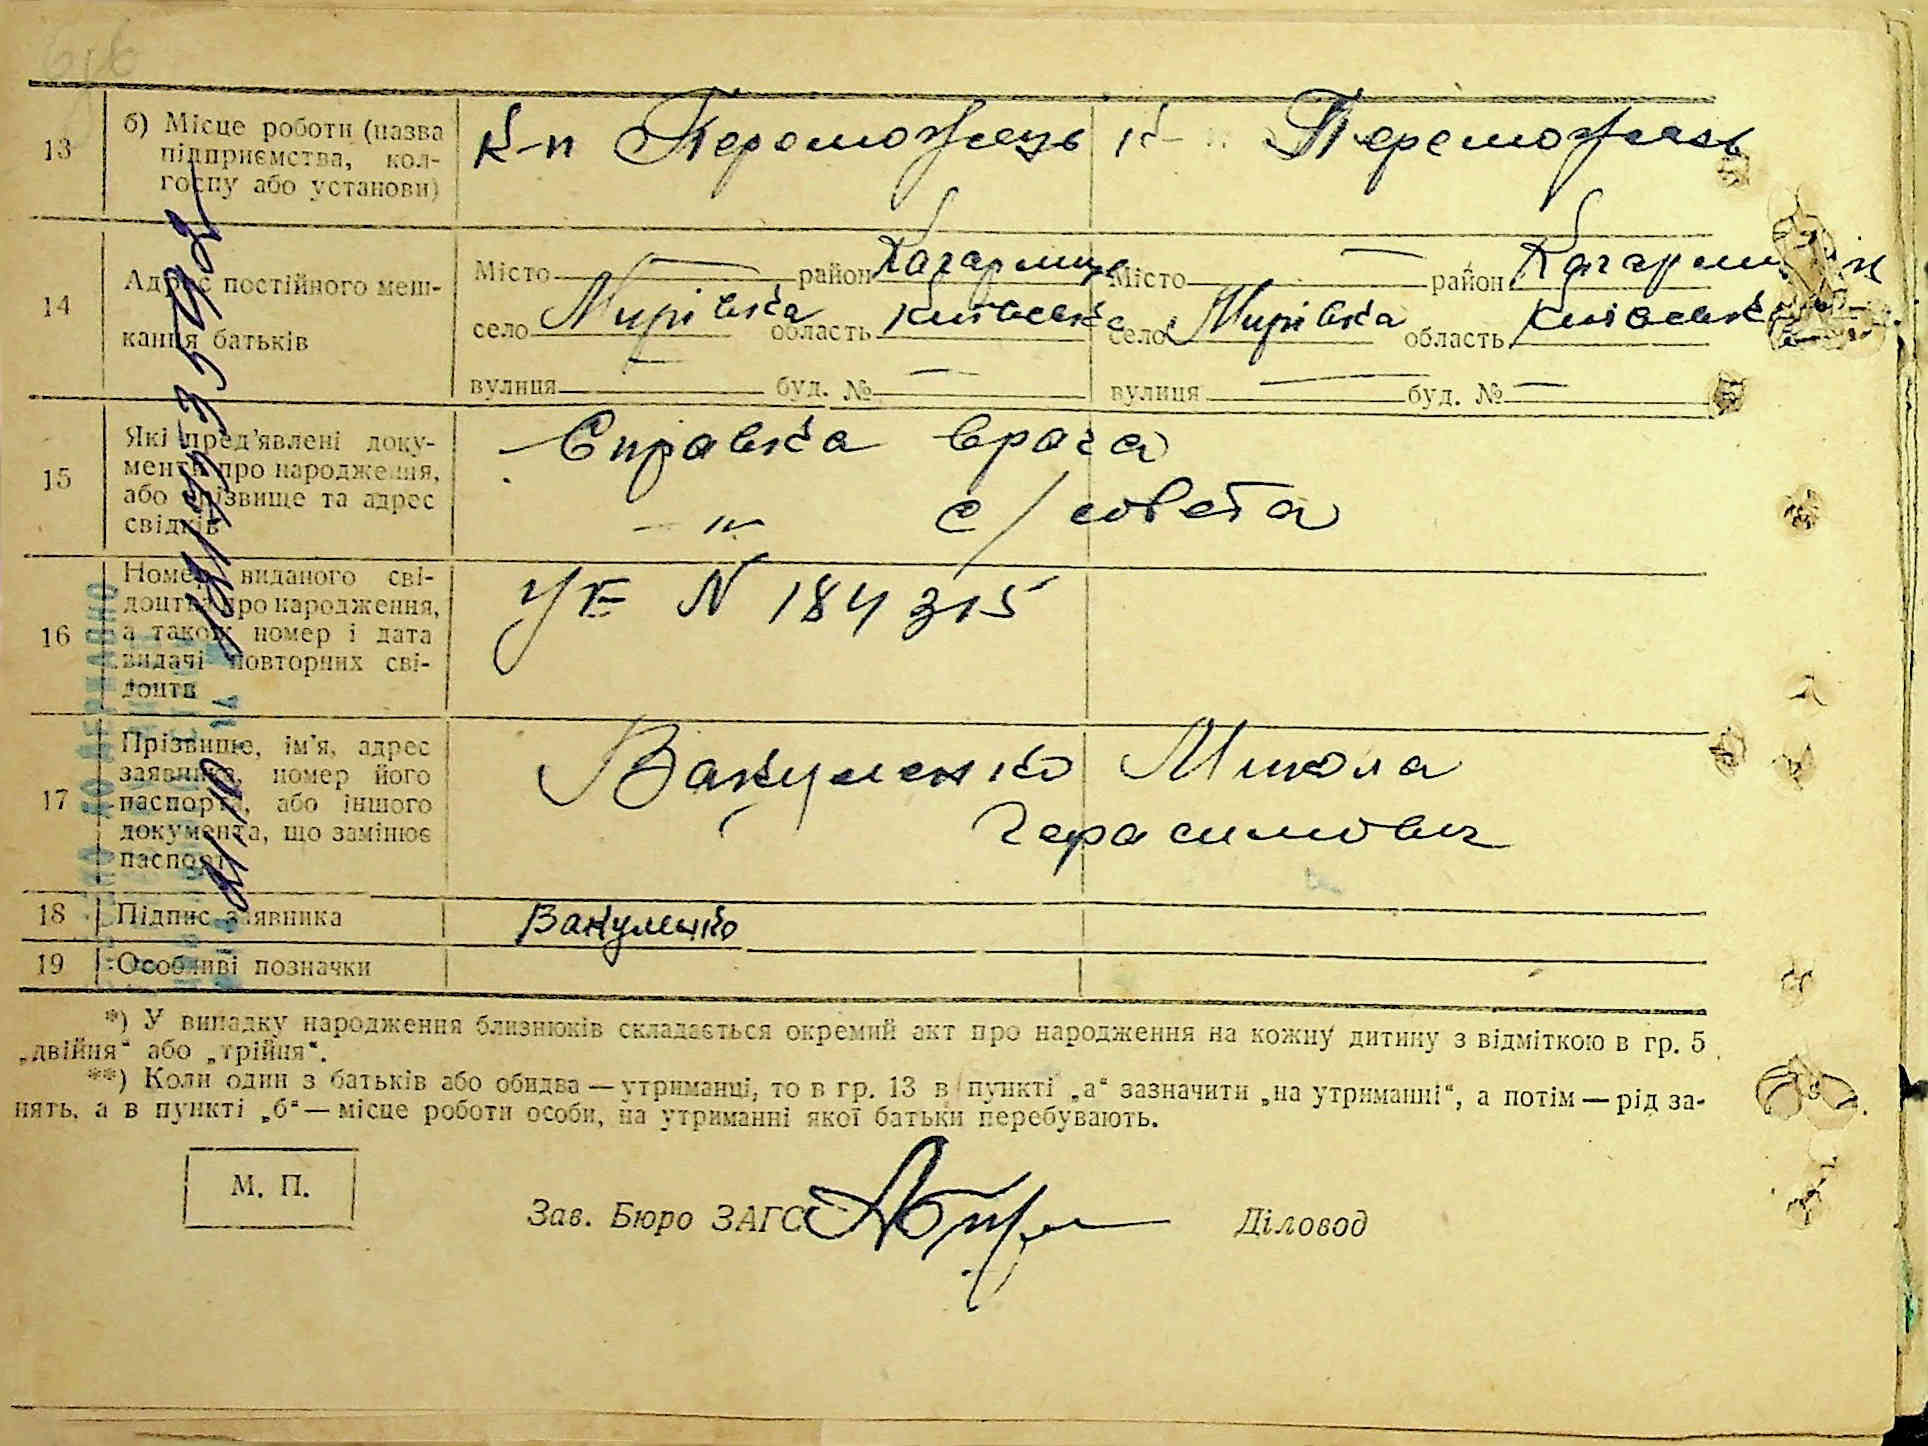 13 б) Місце роботи (назва підприємства, колгоспу або установи) к-п Переможець к-п Переможець
14 Адрес постійного мешкання батьків
Місто — район Кагарлик Місто — район Кагарлик
село Мирівка область Київська село Мирівка область Київськ
вулиця — буд. № — вулиця — буд. № —
15 Які пред'явлені документи про народження, або прізвище та адрес свідків
Справка врача
— " — с/совета
16 Номер виданого свідоцтва про народження, а також номер і дата видачі повторних свідоцтв
УЕ N 184315
17 Прізвище, ім'я, адрес заявника, номер його паспорта, або іншого документа, що замінює паспорт
Вакуленко Микола
Герасимович
18 Підпис заявника Вакуленко
19 Особливі позначки
*) У випадку народження близнюків складається окремий акт про народження на кожну дитину з відміткою в гр. 5
„двійня“ або „трійня“.
**) Коли один з батьків або обидва — утриманці, то в гр. 13 в пункті „а“ зазначити „на утриманні“, а потім — рід за-
нять, а в пункті „б“ — місце роботи особи, на утриманні якої батьки перебувають.
М. П.
Зав. Бюро ЗАГС Діловод